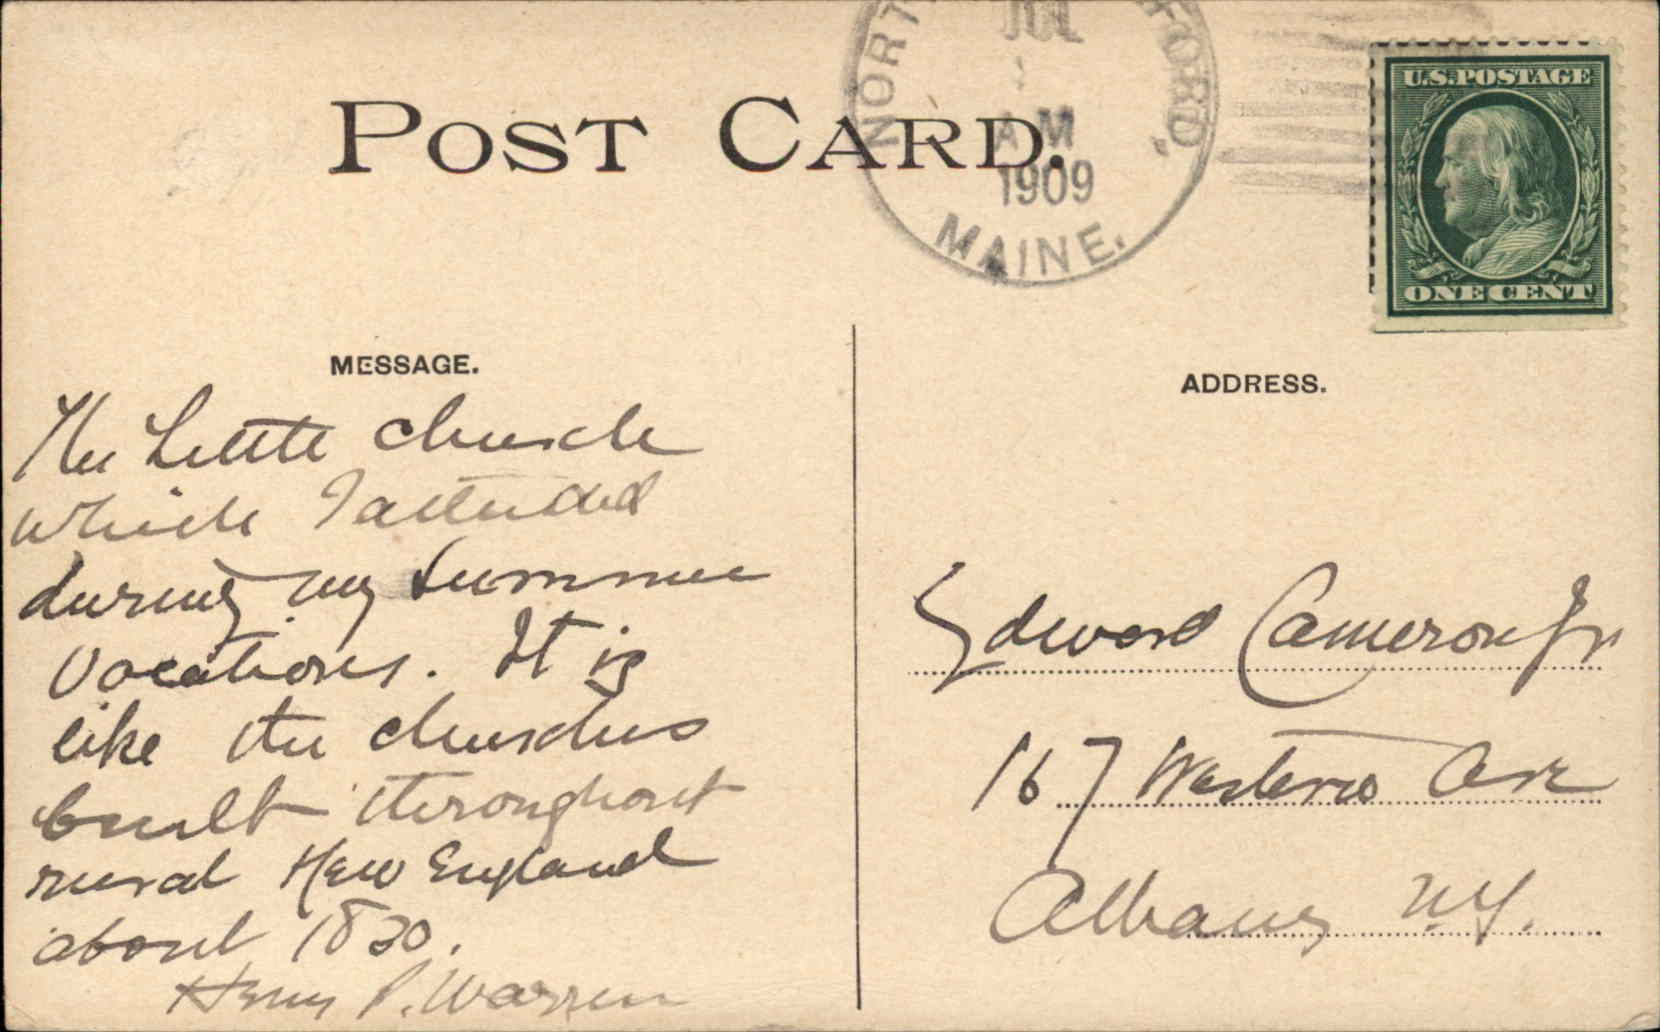 POST CARD.
NORT FORD,
JUL
A.M
1909
MAINE.
U.S.POSTAGE
ONE CENT
MESSAGE.
The Little church
which I attended
during my summer
vacations. It is
like the churches
built throughout
rural New England
about 1830.
Henry P. Warren
ADDRESS.
Edward Cameron Jr
167 Western Ave
Albany N.Y.